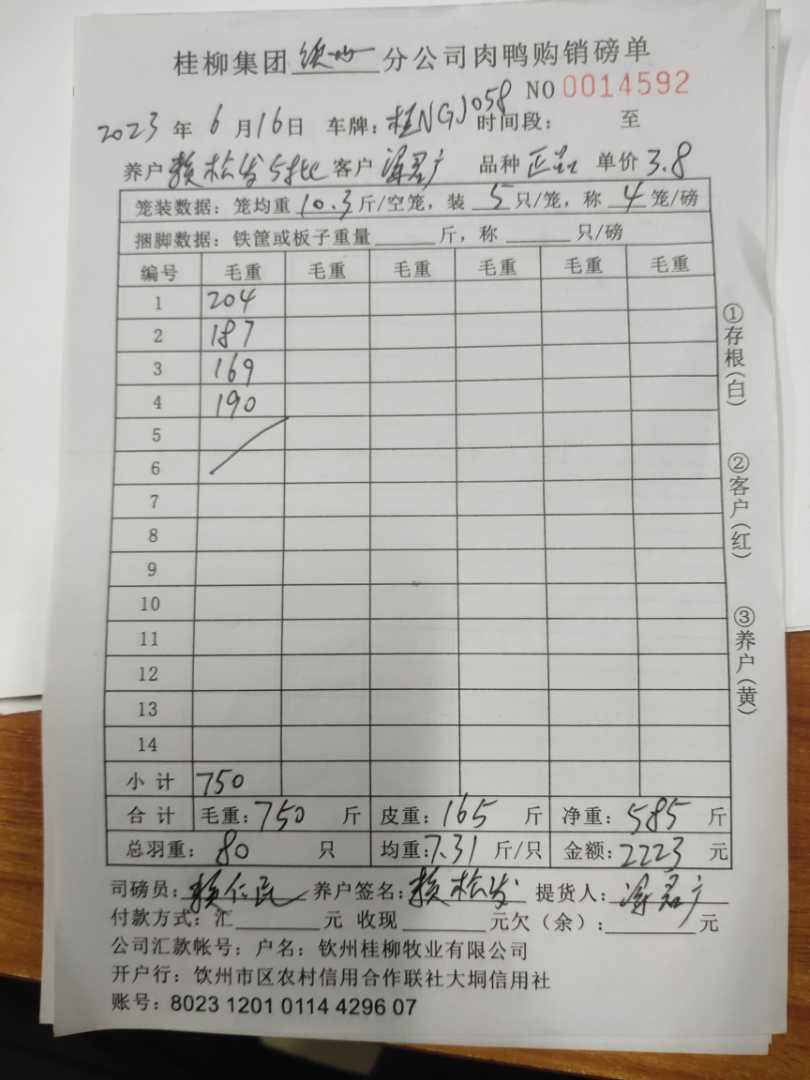 桂柳集团钦州分公司肉鸭购销磅单
NO 0014592
2023年6月16日 车牌:桂NGJ058 时间段: 至
养户赖松发5批 客户 广 品种正品 单价3.8
笼装数据:笼均重10.3斤/空笼,装5只/笼,称4笼/磅
捆脚数据:铁筐或板子重量 斤,称 只/磅
编号 毛重 毛重 毛重 毛重 毛重 毛重
1 204
2 187
3 169
4 190
5
6
7
8
9
10
11
12
13
14
小计 750
合计 毛重:750斤 皮重:165斤 净重:585斤
总羽重:80只 均重:7.31斤/只 金额:2223元
司磅员:赖仁民 养户签名:赖松发 提货人: 广
付款方式:汇 元 收现 元欠(余): 元
公司汇款帐号:户名:钦州桂柳牧业有限公司
开户行:钦州市区农村信用合作联社大垌信用社
账号:8023 1201 0114 4296 07
①存根(白)
②客户(红)
③养户(黄)